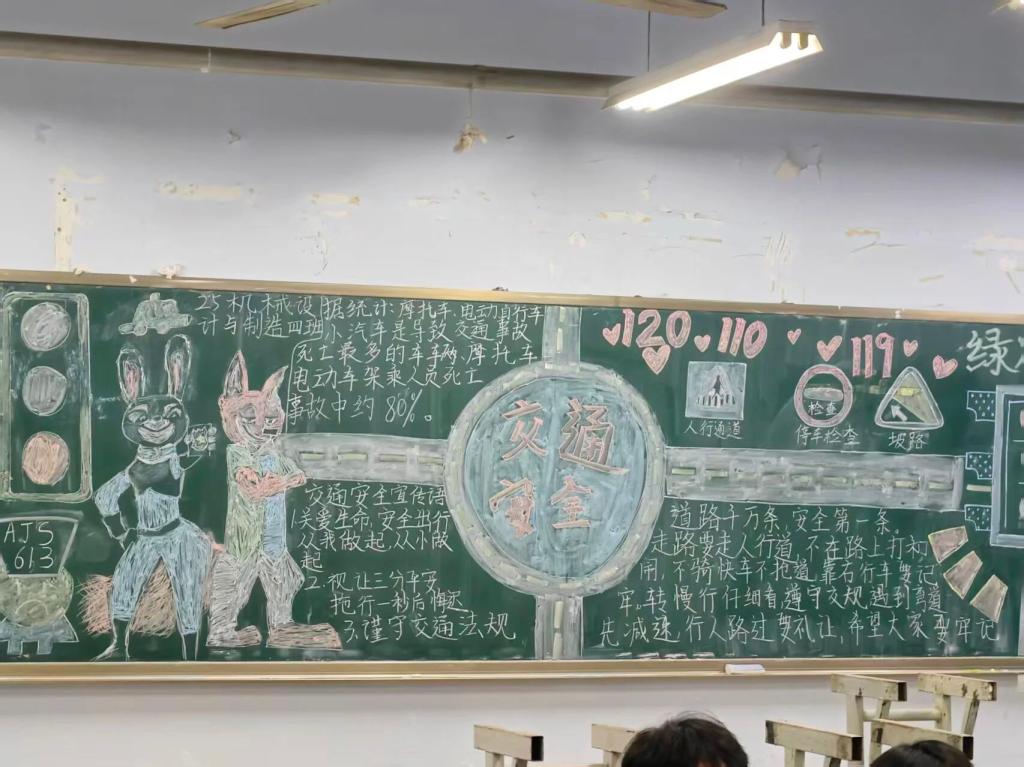 25机械设
计与制造四班
据统计:摩托车、电动自行车
小汽车是导致交通事故
死亡最多的车辆,摩托车
电动车驾乘人员死亡
事故中约80%。
交通
安全
120 110 119
绿
人行通道
检查
停车检查
坡路
AJS
613
交通安全宣传语
1.关爱生命,安全出行
从我做起,从小做
起
2.礼让三分平安
抢行一秒后悔迟
3.谨守交通法规
道路千万条,安全第一条,
走路要走人行道,不在路上打和
闹,不骑快车不抢道,靠右行车要记
牢。转慢行仔细看,遵守交规遇到弯道
先减速,行人路过要礼让,希望大家要牢记